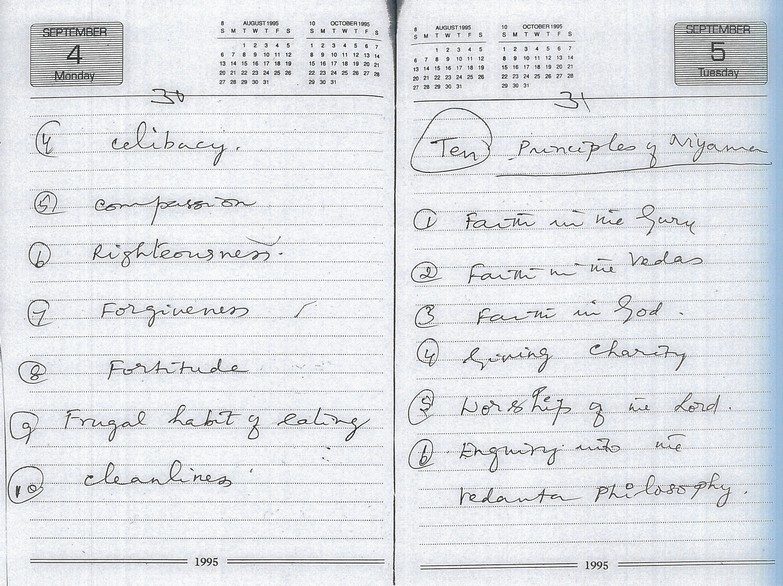 SEPTEMBER
4
Monday
8 AUGUST 1995
S M T W T F S
1 2 3 4 5
6 7 8 9 10 11 12
13 14 15 16 17 18 19
20 21 22 23 24 25 26
27 28 29 30 31
10 OCTOBER 1995
S M T W T F S
1 2 3 4 5 6 7
8 9 10 11 12 13 14
15 16 17 18 19 20 21
22 23 24 25 26 27 28
29 30 31
30
4 celibacy.
5 compassion
6 Righteousness.
7 Forgiveness
8 Fortitude
9 Frugal habit of eating
10 cleanliness
1995
8 AUGUST 1995
S M T W T F S
1 2 3 4 5
6 7 8 9 10 11 12
13 14 15 16 17 18 19
20 21 22 23 24 25 26
27 28 29 30 31
10 OCTOBER 1995
S M T W T F S
1 2 3 4 5 6 7
8 9 10 11 12 13 14
15 16 17 18 19 20 21
22 23 24 25 26 27 28
29 30 31
SEPTEMBER
5
Tuesday
31
Ten Principles of Niyama
1 Faith in the Guru
2 Faith in the Vedas
3 Faith in God.
4 Giving charity
5 Worship of the Lord.
6 Enquiry into the
Vedanta philosophy.
1995